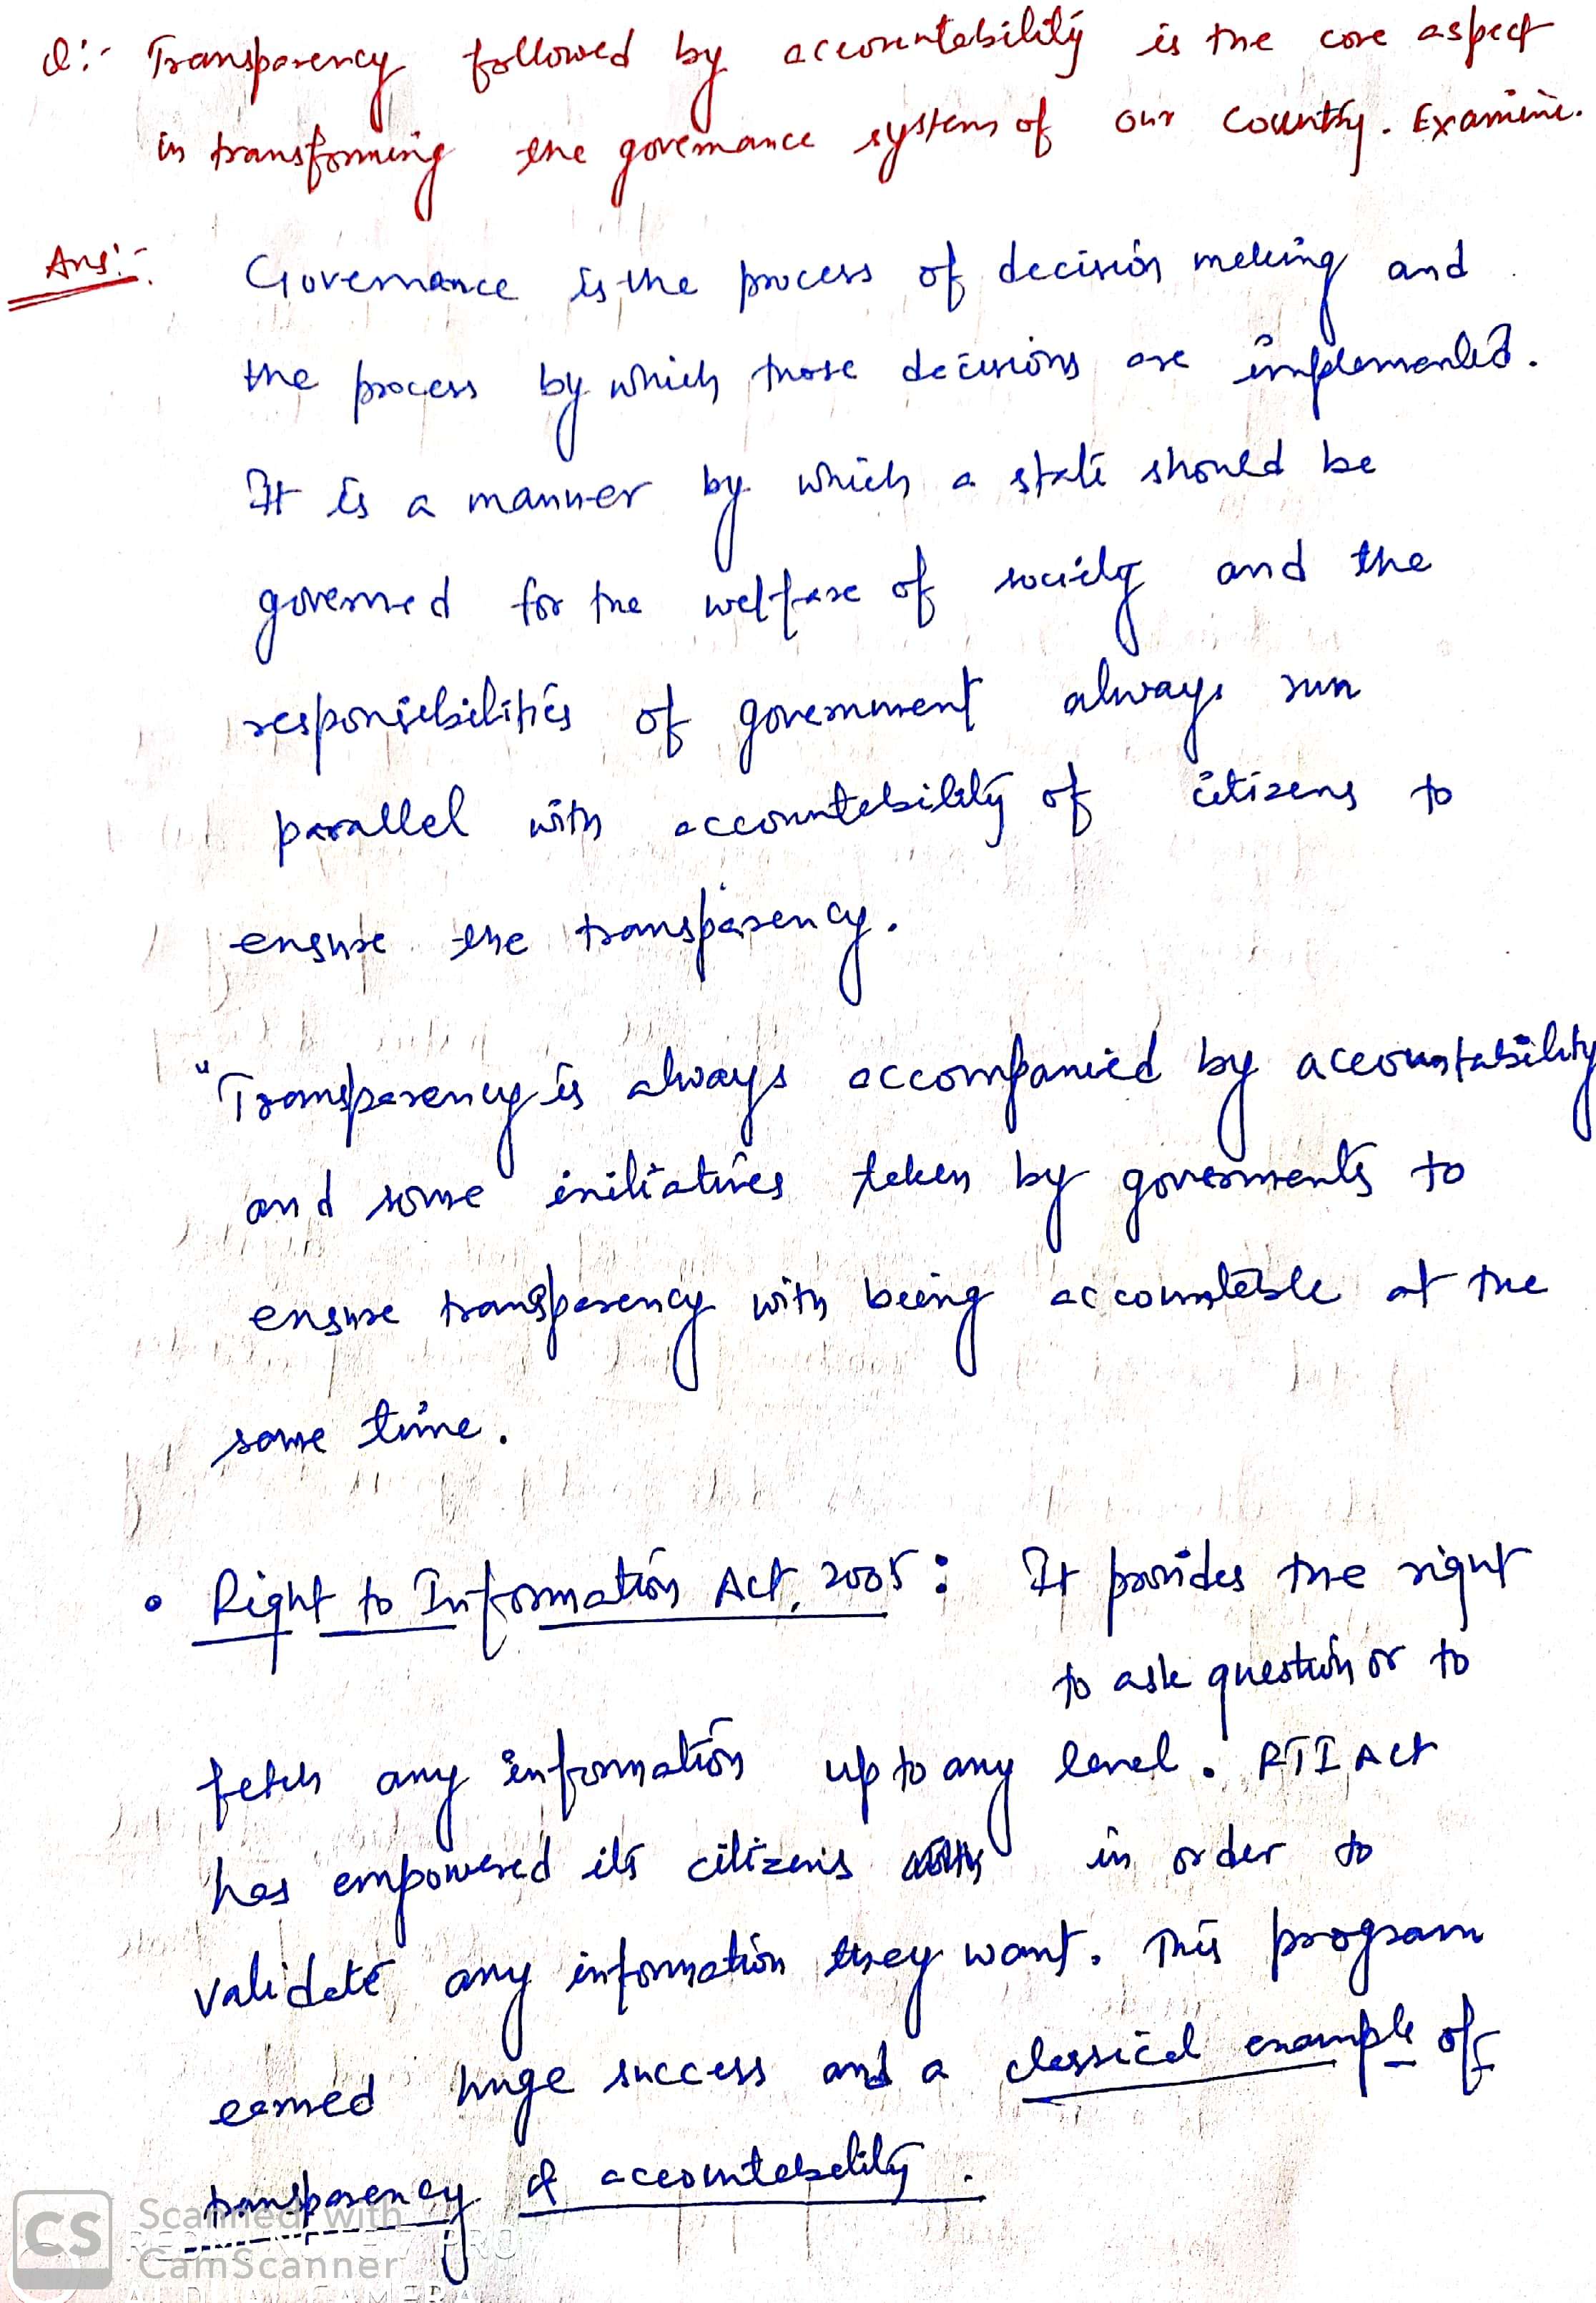 Q:- Transparency followed by accountability is the core aspect
in transforming the governance system of our country. Examine.
Ans:- Governance is the process of decision making and
the process by which those decisions are implemented.
It is a manner by which a state should be
governed for the welfare of society and the
responsibilities of government always run
parallel with accountability of citizens to
ensure the transparency.
"Transparency is always accompanied by accountability
and some initiatives taken by governments to
ensure transparency with being accountable at the
same time.
• Right to Information Act, 2005: It provides the right
to ask question or to
fetch any information up to any level. RTI Act
has empowered its citizens in order to
validate any information they want. This program
earned huge success and a classical example of
transparency & accountability.
CS Scanned with
CamScanner